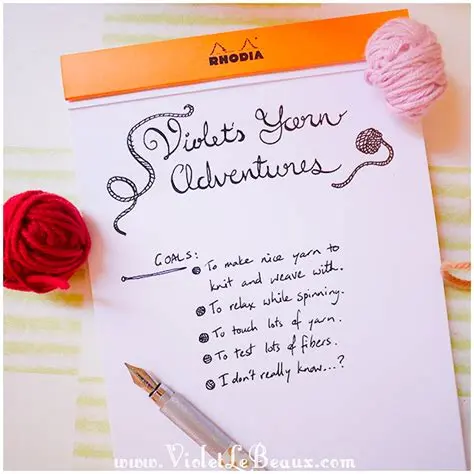 RHODIA
Violet's Yarn
Adventures
GOALS:
To make nice yarn to
knit and weave with.
To relax while spinning.
To touch lots of yarn.
To test lots of fibers.
I don't really know...?
www.VioletLeBeaux.com